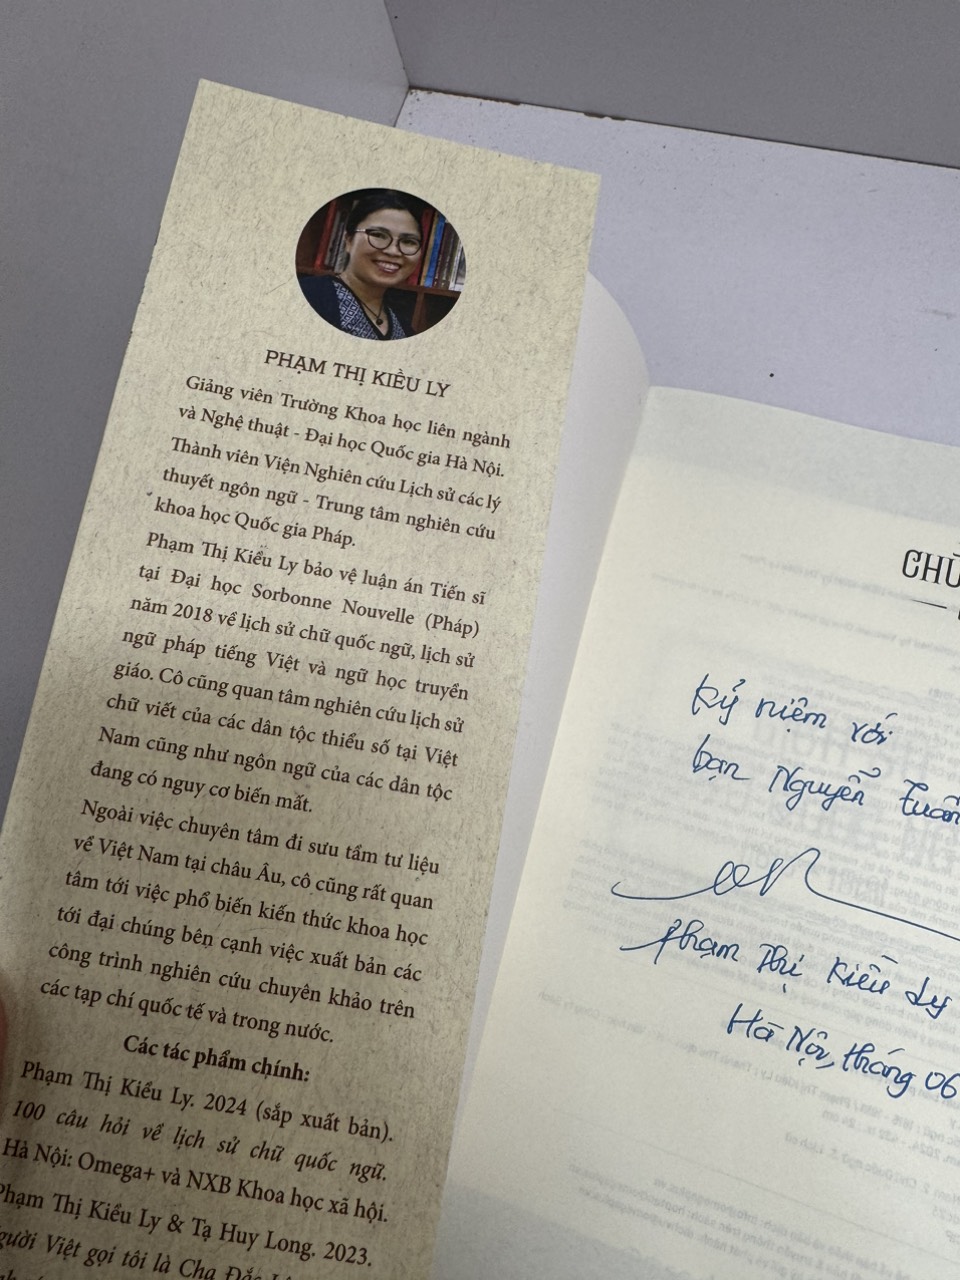 PHẠM THỊ KIỀU LY
Giảng viên Trường Khoa học liên ngành
và Nghệ thuật - Đại học Quốc gia Hà Nội.
Thành viên Viện Nghiên cứu Lịch sử các lý
thuyết ngôn ngữ - Trung tâm nghiên cứu
khoa học Quốc gia Pháp.
Phạm Thị Kiều Ly bảo vệ luận án Tiến sĩ
tại Đại học Sorbonne Nouvelle (Pháp)
năm 2018 về lịch sử chữ quốc ngữ, lịch sử
ngữ pháp tiếng Việt và ngữ học truyền
giáo. Cô cũng quan tâm nghiên cứu lịch sử
chữ viết của các dân tộc thiểu số tại Việt
Nam cũng như ngôn ngữ của các dân tộc
đang có nguy cơ biến mất.
Ngoài việc chuyên tâm đi sưu tầm tư liệu
về Việt Nam tại châu Âu, cô cũng rất quan
tâm tới việc phổ biến kiến thức khoa học
tới đại chúng bên cạnh việc xuất bản các
công trình nghiên cứu chuyên khảo trên
các tạp chí quốc tế và trong nước.
Các tác phẩm chính:
Phạm Thị Kiều Ly. 2024 (sắp xuất bản).
100 câu hỏi về lịch sử chữ quốc ngữ.
Hà Nội: Omega+ và NXB Khoa học xã hội.
Phạm Thị Kiều Ly & Tạ Huy Long. 2023.
gười Việt gọi tôi là Cha Đắc
Kỷ niệm với
bạn Nguyễn Tuấn
Phạm Thị Kiều Ly
Hà Nội, tháng 06